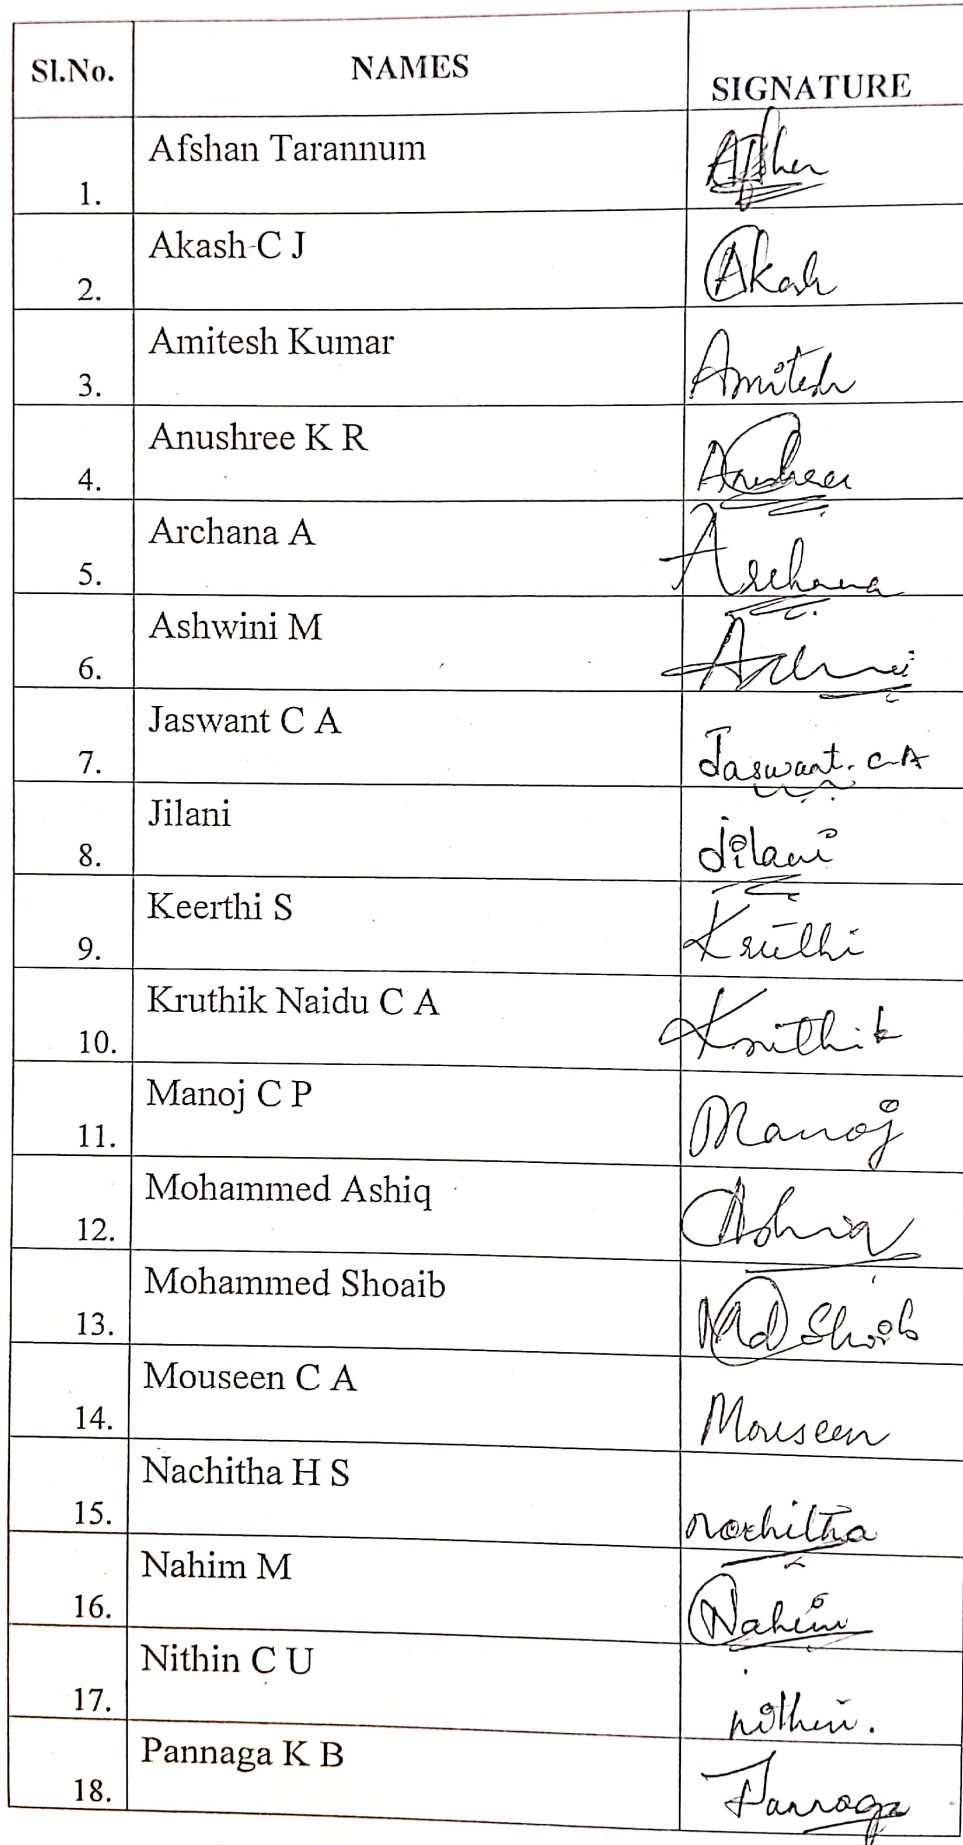 Sl.No. NAMES SIGNATURE
1. Afshan Tarannum
2. Akash C J Akash
3. Amitesh Kumar Amitesh
4. Anushree K R Anushree
5. Archana A Archana
6. Ashwini M
7. Jaswant C A Jaswant. C A
8. Jilani Jilani
9. Keerthi S
10. Kruthik Naidu C A Kruthik
11. Manoj C P Manoj
12. Mohammed Ashiq Ashiq
13. Mohammed Shoaib Md Shoib
14. Mouseen C A Mouseen
15. Nachitha H S Nachitha
16. Nahim M Nahim
17. Nithin C U nithin.
18. Pannaga K B Pannaga